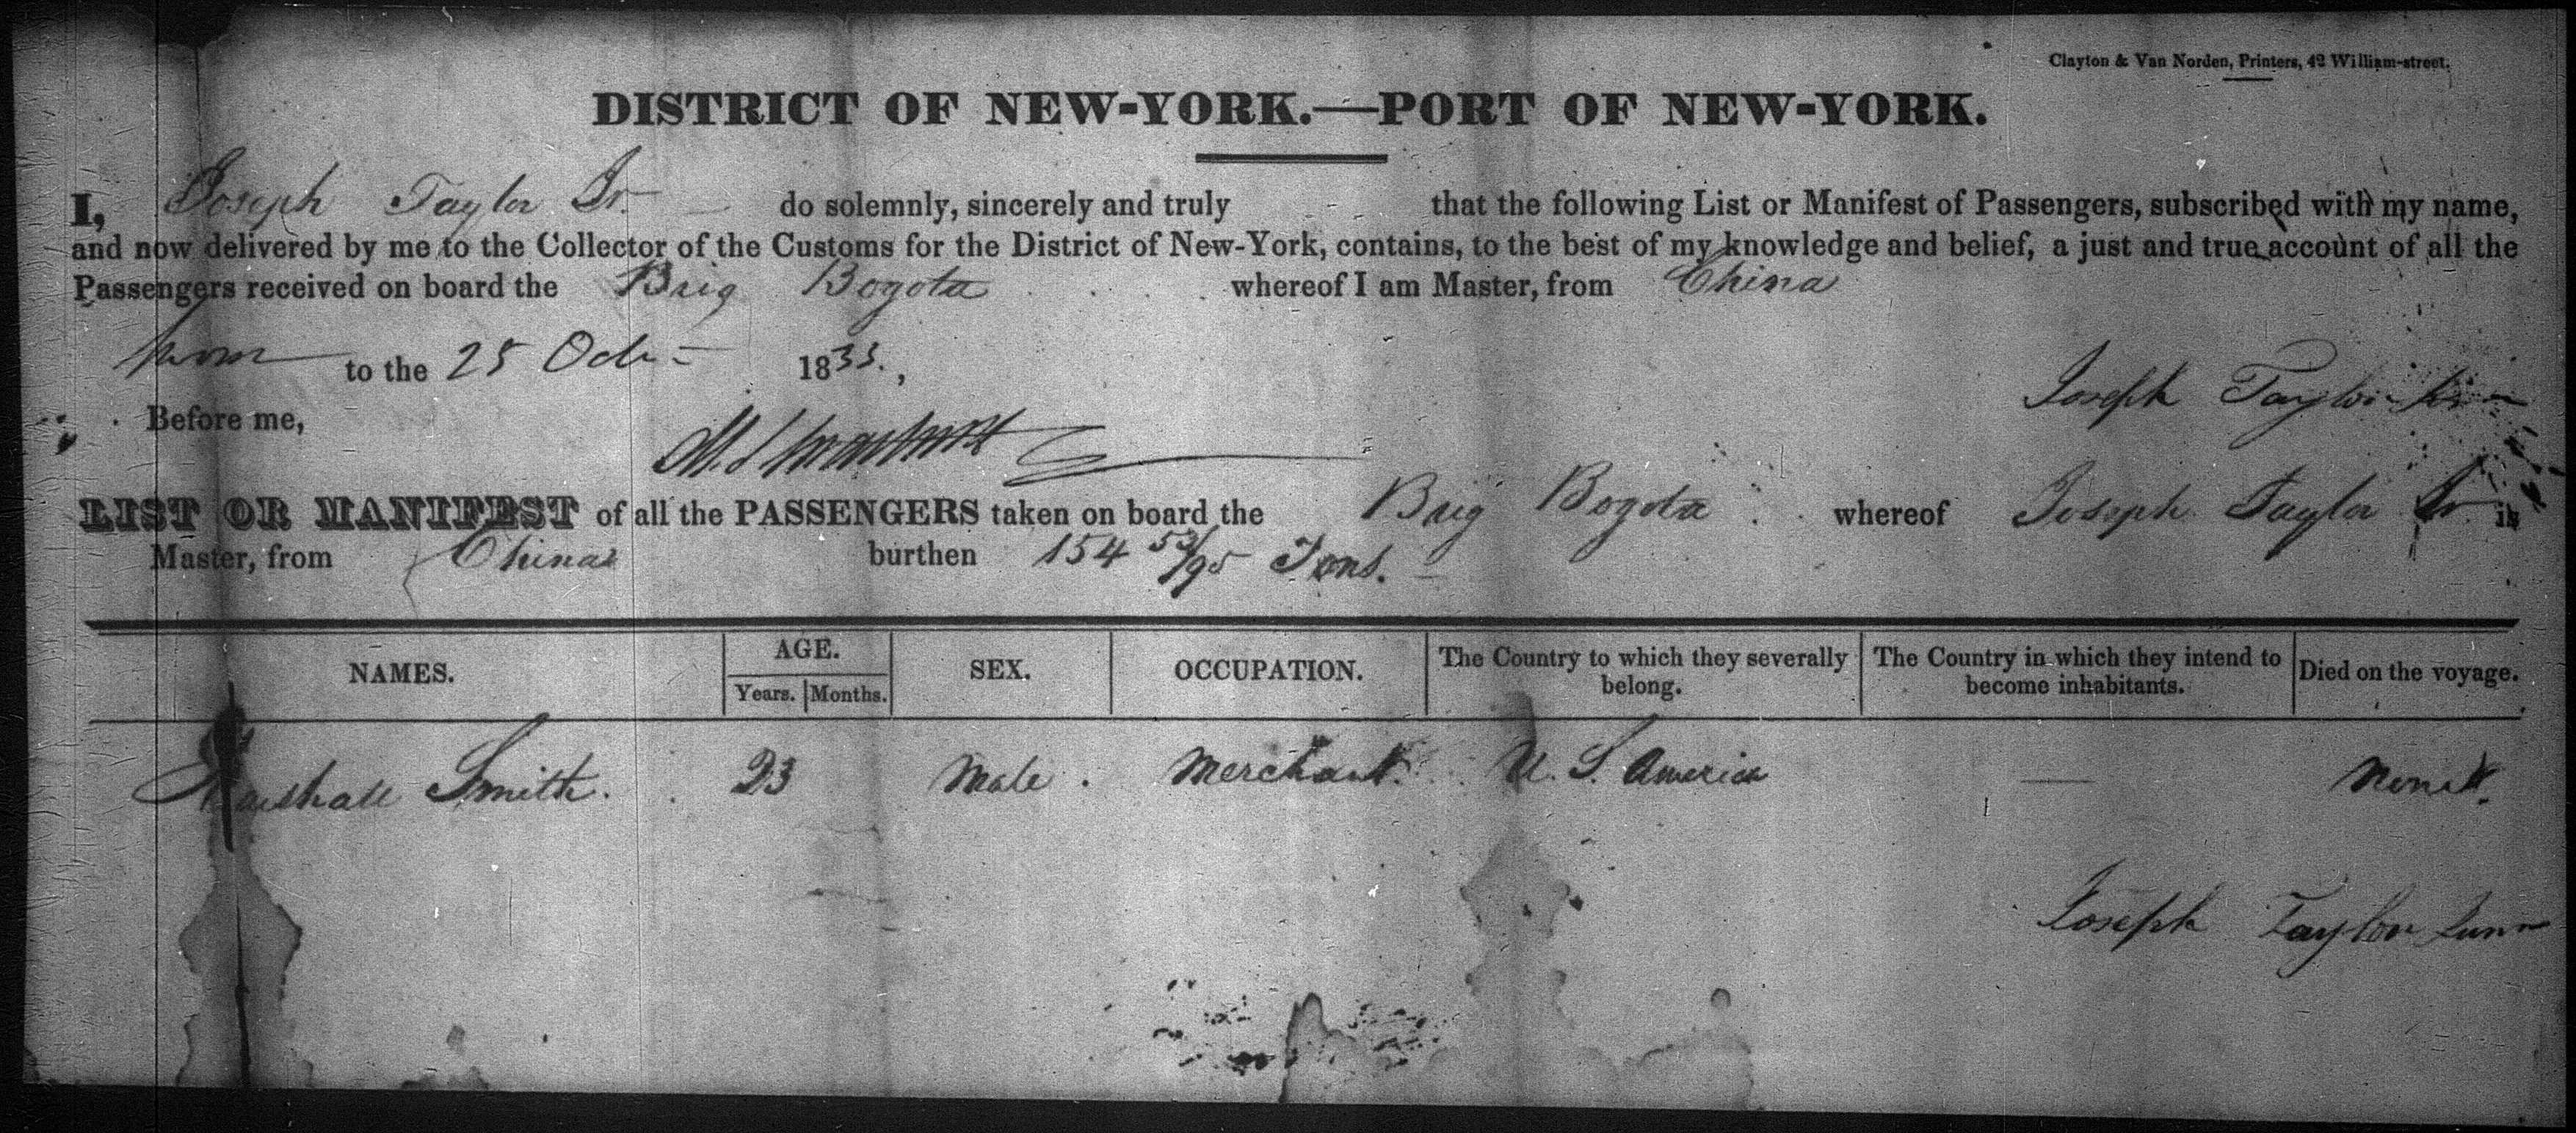 Clayton & Van Norden, Printers, 42 William-street.
DISTRICT OF NEW-YORK.—PORT OF NEW-YORK.
I, Joseph Taylor Jr. do solemnly, sincerely and truly that the following List or Manifest of Passengers, subscribed with my name,
and now delivered by me to the Collector of the Customs for the District of New-York, contains, to the best of my knowledge and belief, a just and true account of all the
Passengers received on board the Brig Bogota whereof I am Master, from China
Sworn to the 25 Octr 1833.,
Joseph Taylor Jr
Before me,
LIST OR MANIFEST of all the PASSENGERS taken on board the Brig Bogota whereof Joseph Taylor Jr. is
Master, from China burthen 154 53/95 Tons.
NAMES. AGE. Years. Months. SEX. OCCUPATION. The Country to which they severally belong. The Country in which they intend to become inhabitants. Died on the voyage.
Marshall Smith. 23 Male. Merchant. U. S. America — None.
Joseph Taylor Junr